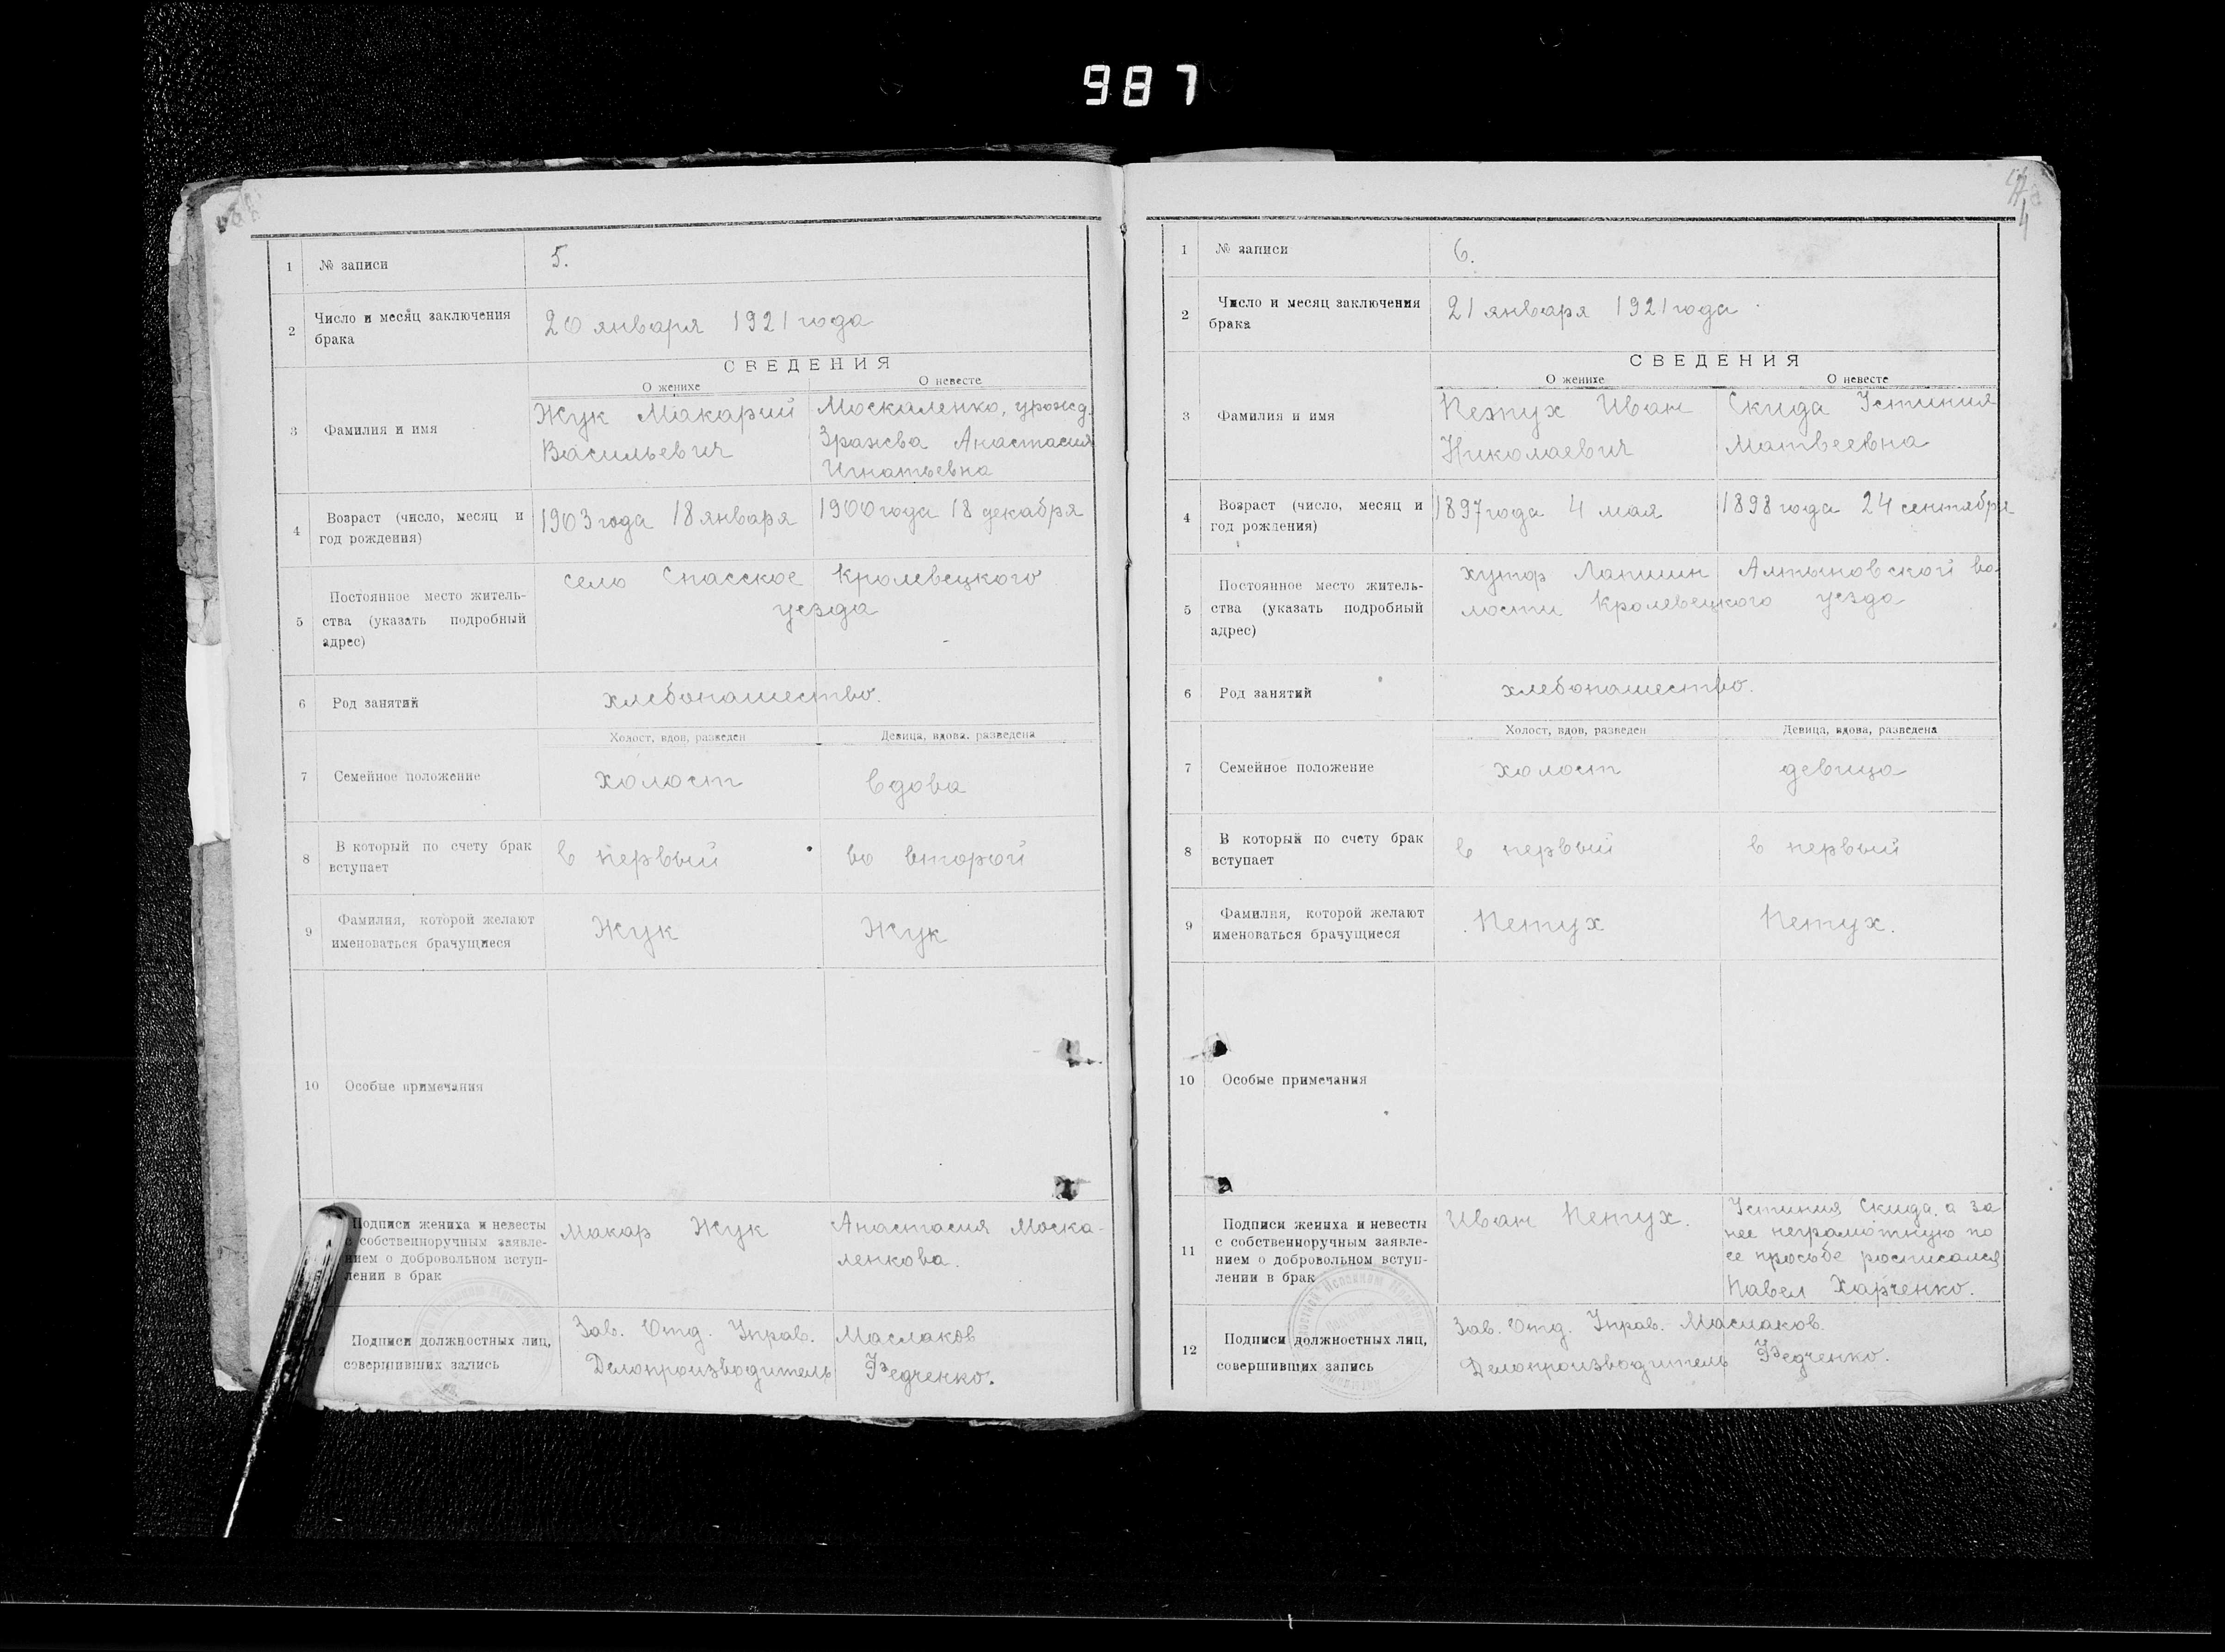 987
1 № записи 5.
2 Число и месяц заключения
брака
20 января 1921 года
СВЕДЕНИЯ
О женихе О невесте
3 Фамилия и имя
Жук Макарий
Васильевич
Москаленко, урожд.
Зражева Анастасия
Игнатьевна
4 Возраст (число, месяц и
год рождения)
1903 года 18 января 1900 года 18 декабря
5 Постоянное место житель-
ства (указать подробный
адрес)
село Спасское Кролевецкого
уезда
6 Род занятий хлебопашество.
Холост, вдов, разведен Девица, вдова, разведена
7 Семейное положение холост вдова
8 В который по счету брак
вступает
в первый во второй
9 Фамилия, которой желают
именоваться брачущиеся
Жук Жук
10 Особые примечания
Подписи жениха и невесты
с собственноручным заявле-
нием о добровольном вступ-
лении в брак
Макар Жук
Анастасия Моска-
ленкова.
12 Подписи должностных лиц,
совершивших запись
Зав. Отд. Управ. Маслаков
Делопроизводитель Федченко.
4
1 № записи 6.
2 Число и месяц заключения
брака
21 января 1921 года
СВЕДЕНИЯ
О женихе О невесте
3 Фамилия и имя
Петух Иван
Николаевич
Скида Устиния
Матвеевна
4 Возраст (число, месяц и
год рождения)
1897 года 4 мая 1898 года 24 сентября
5 Постоянное место житель-
ства (указать подробный
адрес)
хутор Лапшин Алтыновской во-
лости Кролевецкого уезда
6 Род занятий хлебопашество.
Холост, вдов, разведен Девица, вдова, разведена
7 Семейное положение холост девица
8 В который по счету брак
вступает
в первый в первый
9 Фамилия, которой желают
именоваться брачущиеся
Петух Петух.
10 Особые примечания
11 Подписи жениха и невесты
с собственноручным заявле-
нием о добровольном вступ-
лении в брак
Иван Петух.
Устиния Скида, а за
нее неграмотную по
ее просьбе росписался
Павел Харченко.
12 Подписи должностных лиц,
совершивших запись
Зав. Отд. Управ. Маслаков.
Делопроизводитель Федченко.